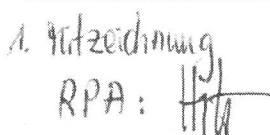 1. Mitzeichnung
RPA: